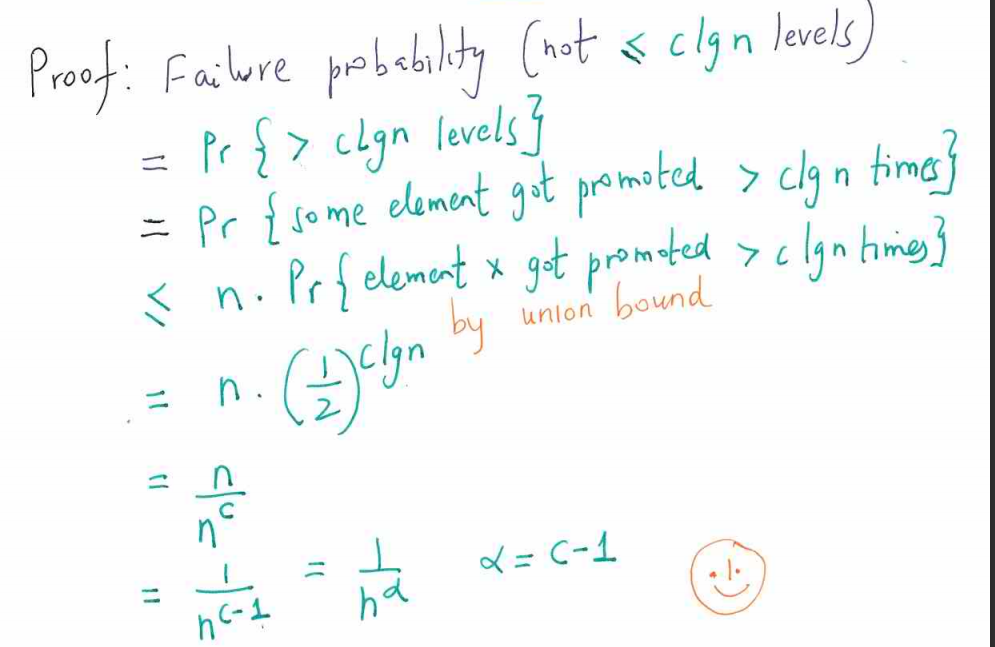 Proof: Failure probability (not ≤ clgn levels)
= Pr { > clgn levels}
= Pr {some element got promoted > clgn times}
≤ n. Pr{element x got promoted > clgn times}
by union bound
= n. (1/2)^clgn
= n/n^c
= 1/n^(c-1) = 1/n^α α = c-1